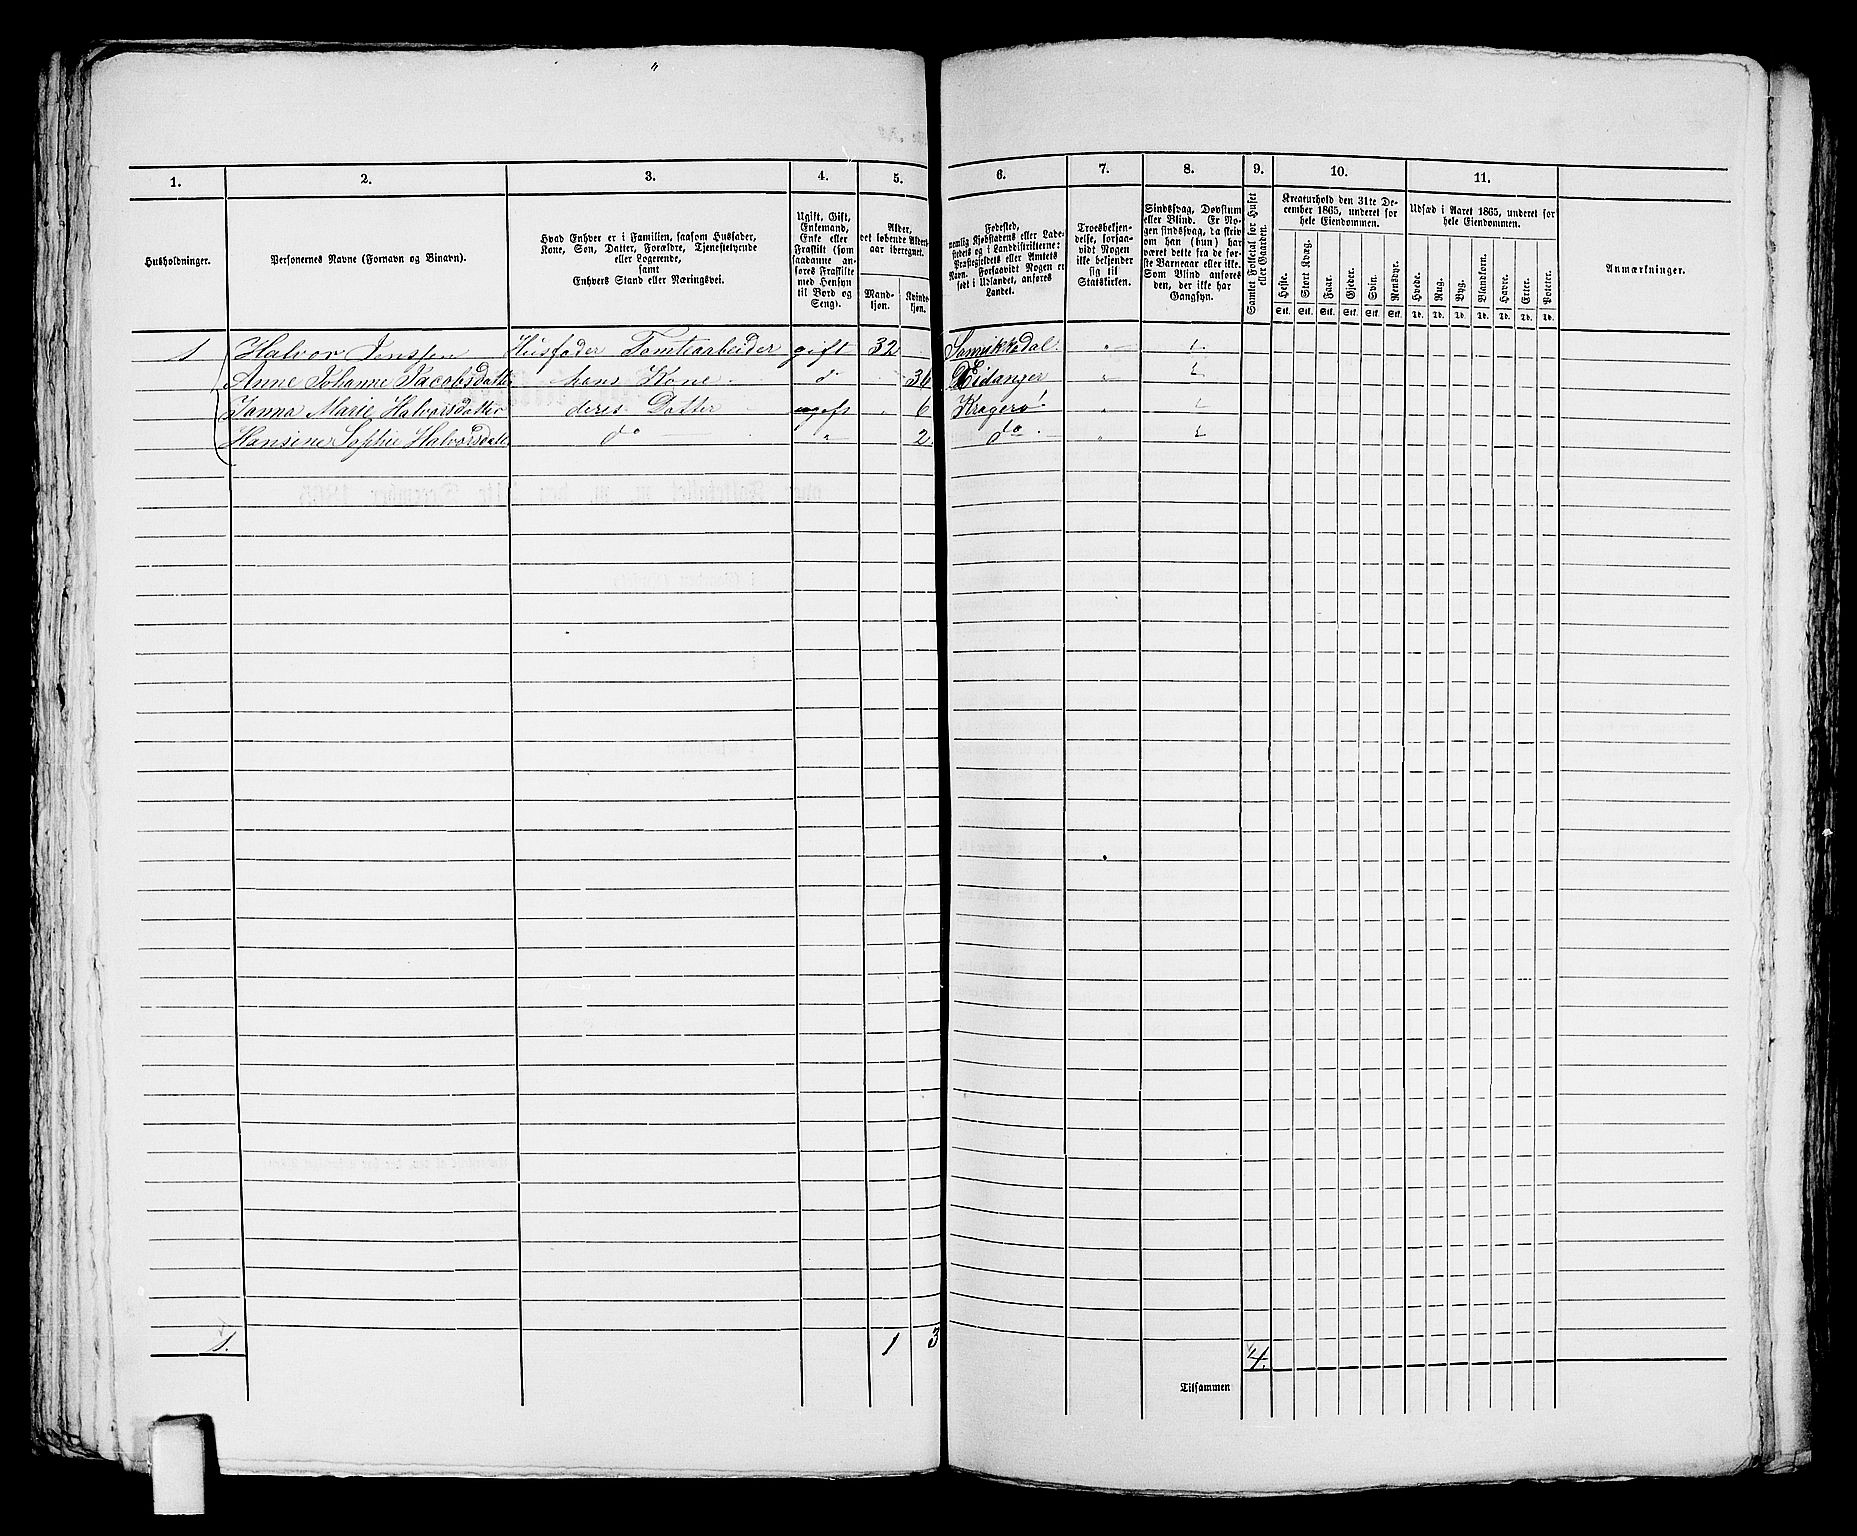 1. 2. 3. 4. 5. 6. 7. 8. 9. 10. 11.
Husholdninger.
Personernes Navne (Fornavn og Binavn).
Hvad Enhver er i Familien, saasom Husfader,
Kone, Søn, Datter, Forældre, Tjenestetyende
eller Logerende,
samt
Enhvers Stand eller Næringsvei.
Ugift, Gift,
Enkemand,
Enke eller
Fraskilt (som
saadanne an-
føres Fraskilte
med Hensyn
til Bord og
Seng).
Alder,
det løbende Alders-
aar iberegnet.
Mand-
kjøn.
Kvind-
kjøn.
Fødested,
nemlig Kjøbstadens eller Lade-
stedets og i Landdistrikterne:
Præstegjeldets eller Amtets
Navn. Forsaavidt Nogen er
født i Udlandet, anføres
Landet.
Troesbekjen-
delse, forsaa-
vidt Nogen
ikke bekjender
sig til
Statskirken.
Sindssvag, Døvstum
eller Blind. Er No-
gen sindssvag, da skriv
om han (hun) har
været dette fra de før-
ste Barneaar eller ikke.
Som Blind anføres
den, der ikke har
Gangsyn.
Samlet Folketal for Huset
eller Gaarden.
Kreaturhold den 31te De-
cember 1865, underet for
hele Eiendommen.
Heste. Stort Kvæg. Faar. Gjeder. Svin. Rensdyr.
Stk. Stk. Stk. Stk. Stk. Stk.
Udsæd i Aaret 1865, underet for
hele Eiendommen.
Hvede. Rug. Byg. Blandkorn. Havre. Erter. Poteter.
Td. Td. Td. Td. Td. Td. Td.
Anmærkninger.
1 Halvor Jenssen Husfader Tomtearbeider gift 32 Sannikkedal. „
Anne Johanne Jacobsdatter hans Kone do 36 Eidanger „
Janna Marie Halvorsdatter deres Datter ugift „ 6 Kragerø „
Hansine Sophie Halvorsdatter do „ 2 do „
1. 1 3 4.
Tilsammen